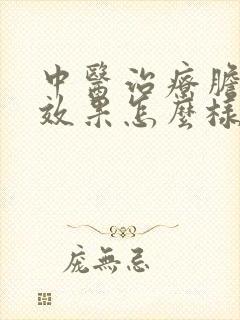 中醫治療膽
效果怎麼樣
龐無忌